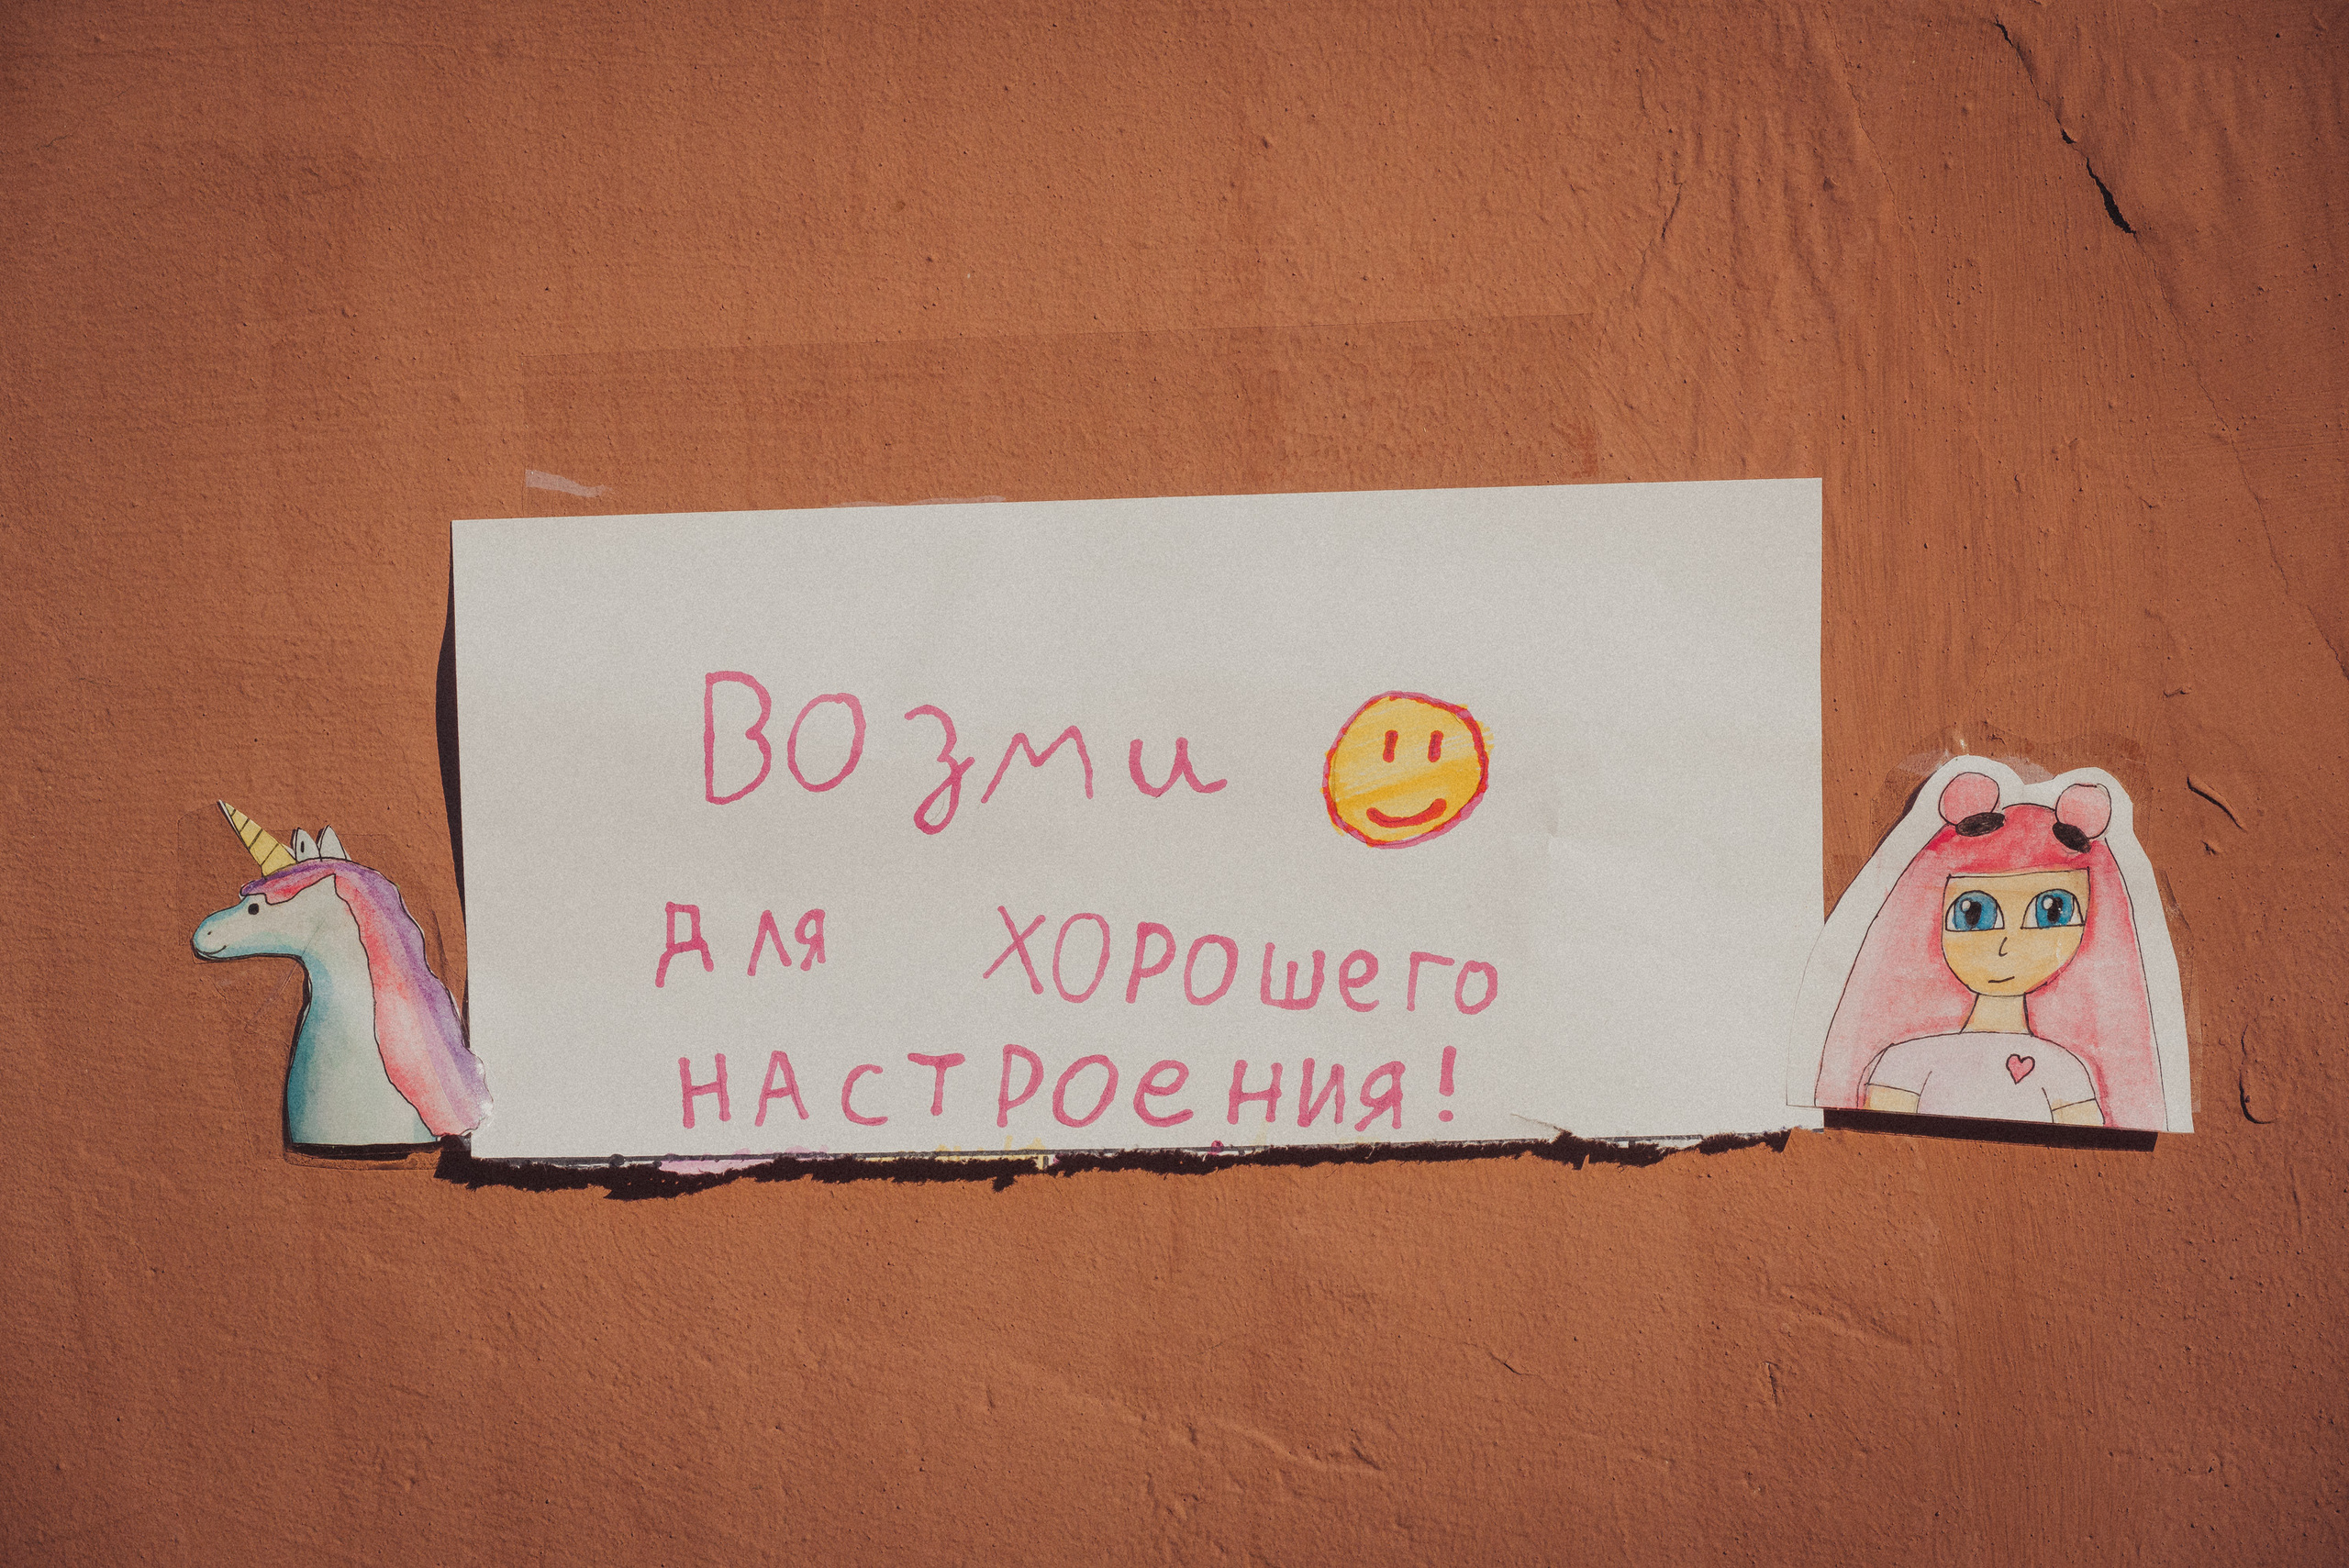 Возми
для хорошего
настроения!